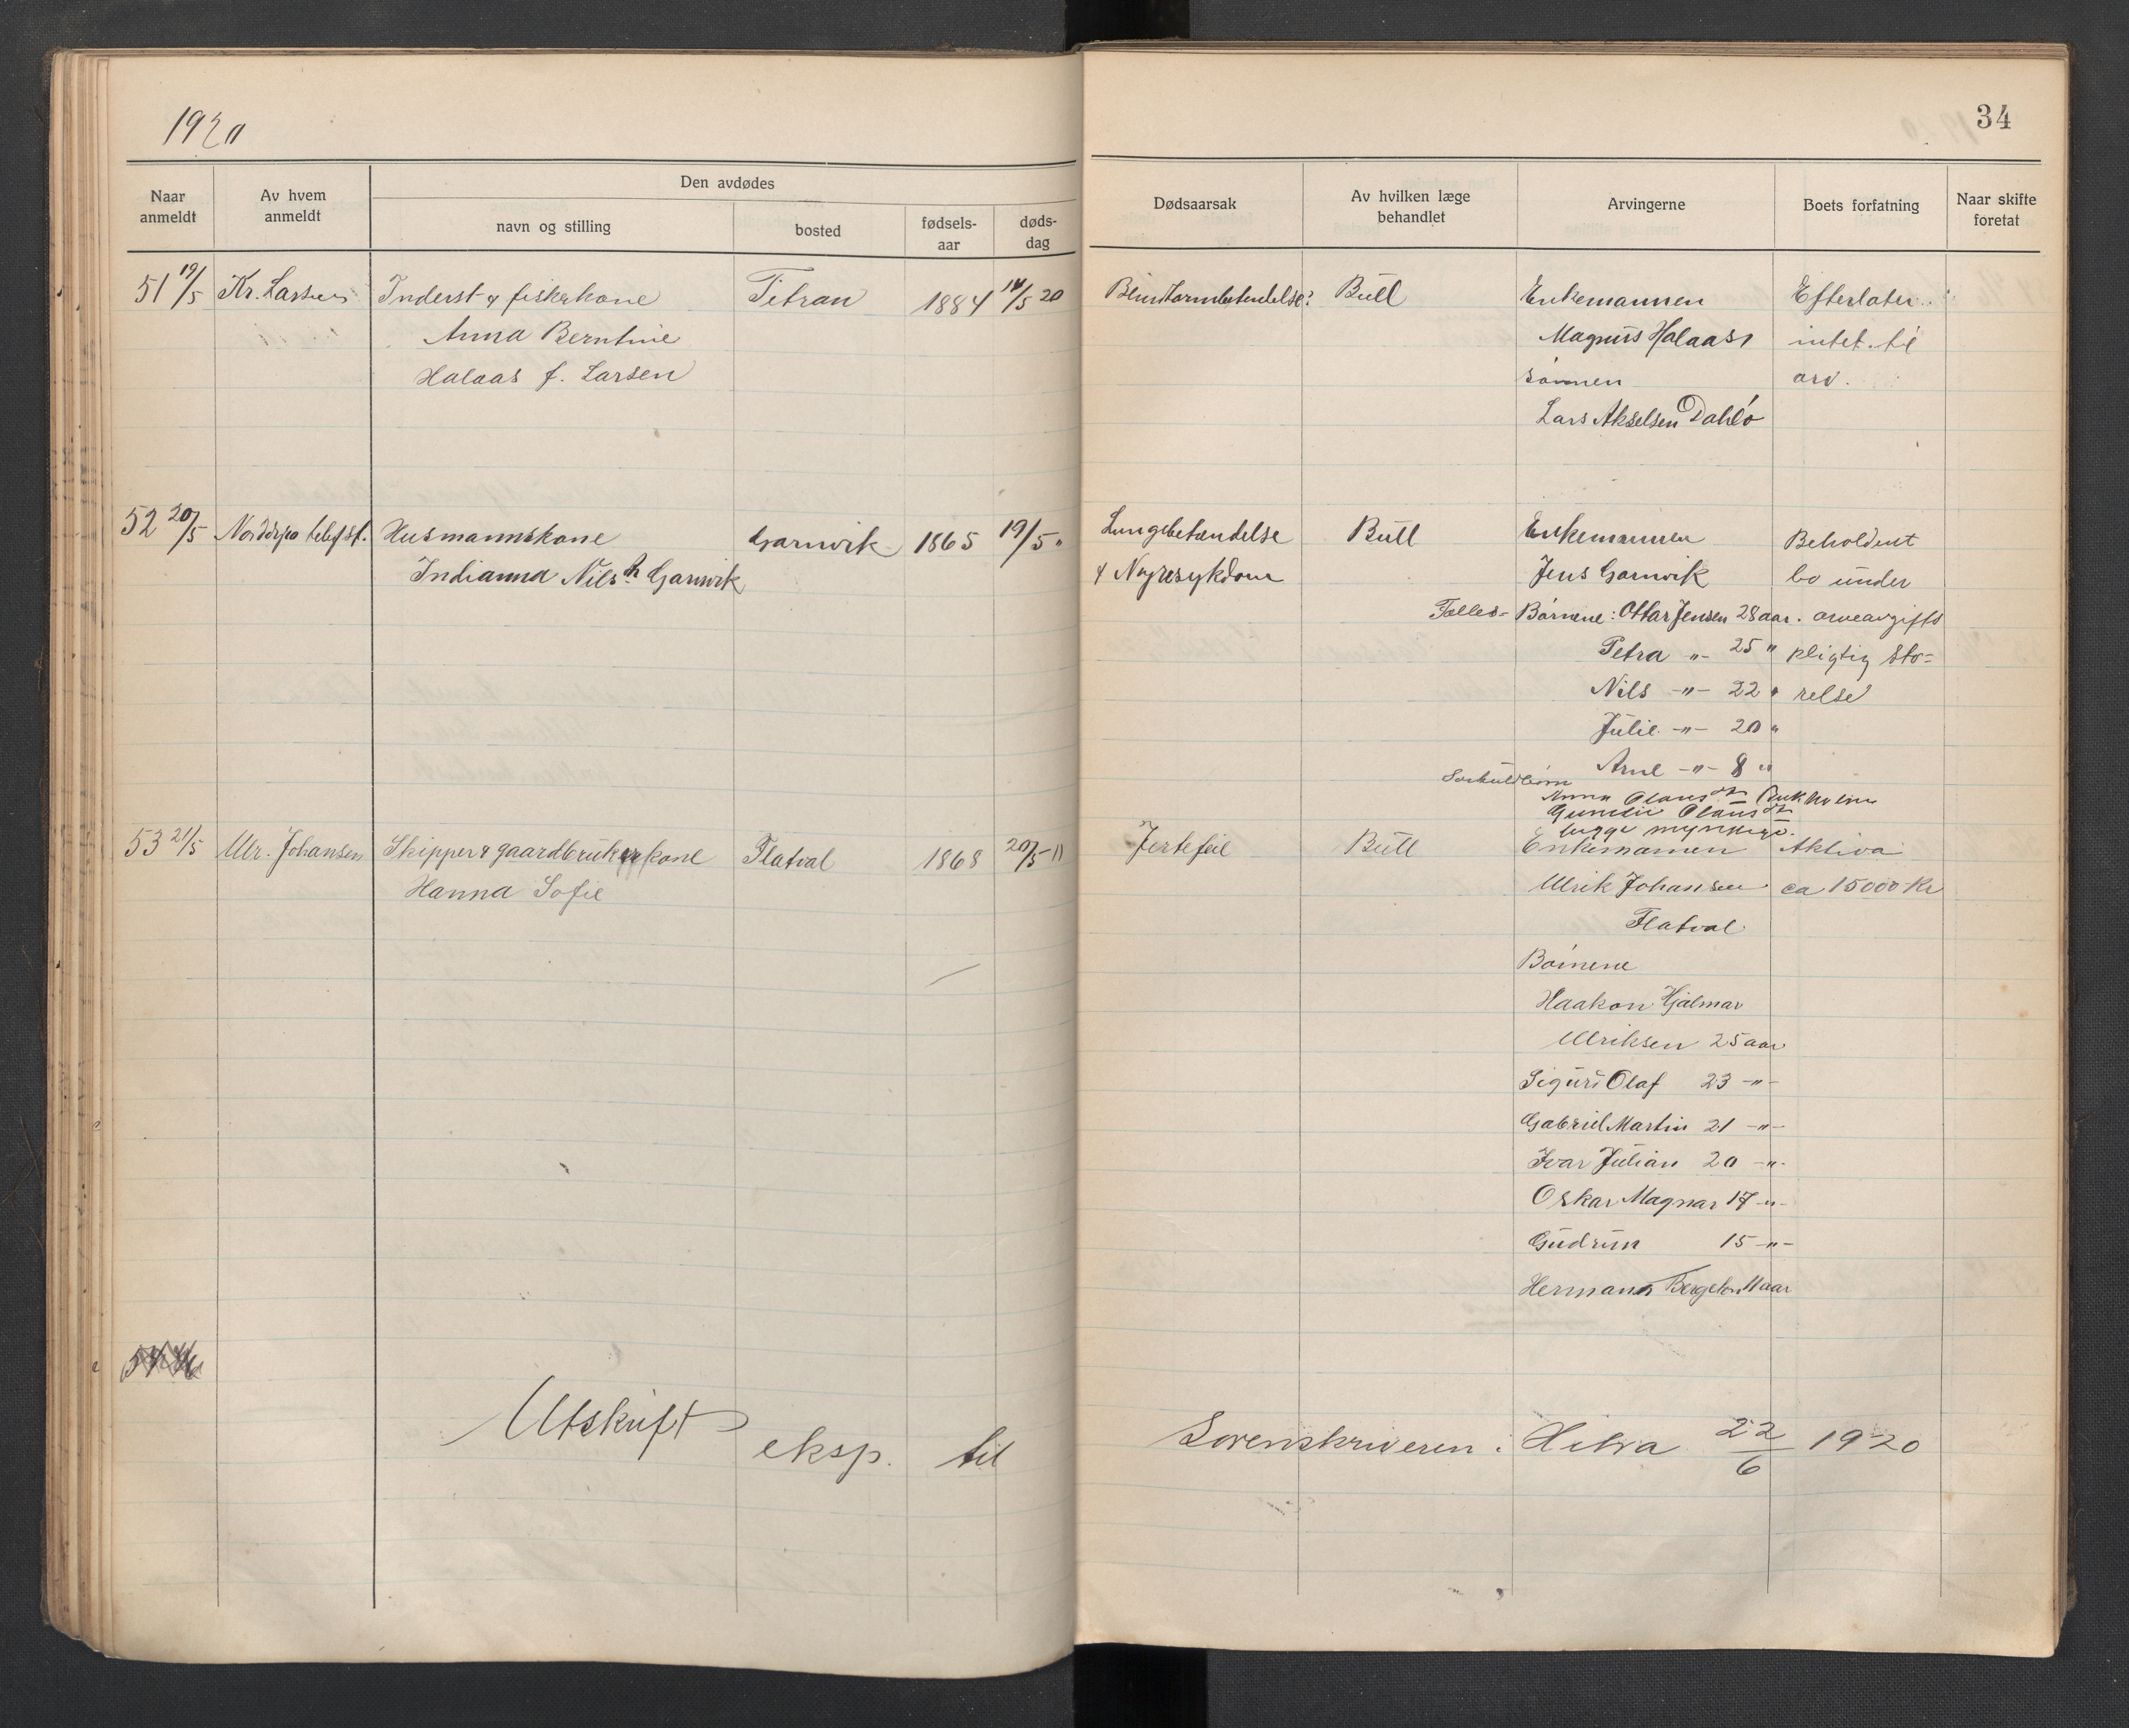 1920
34
Naar anmeldt
Av hvem anmeldt
Den avdødes
navn og stilling
bosted
fødsels-aar
døds-dag
Dødsaarsak
Av hvilken læge behandlet
Arvingerne
Boets forfatning
Naar skifte foretat
51 19/5 Kr. Larsen Inderst- & fiskerkone Titran 1884 14/5 20 Blindtarmbetendelse? Bull Enkemannen Efterlater
Anna Berntine Magnus Halaas, intet til
Halaas f. Larsen sønnen arv.
Lars Akselsen Dahlø
52 20/5 telefst. Husmannskone Garnvik 1865 19/5 " Lungebetændelse Bull Enkemannen Beholdent
Indianna Nilsdr Garnvik & Nyresykdom Jens Garnvik bo under
Fælles- Børnene: Ottar Jensen 28 aar. arveavgifts
Petra -"- 25 " pligtig stø-
Nils -"- 22 " relse
Julie -"- 20 "
Arne -"- 8 "
Særkuldbørn
Anna Olausdtr
Olausdtr
begge myndige.
53 21/5 Ulr. Johansen Skipper & gaardbrukerkone Flatval 1868 20/5 " Jertefeil Bull Enkemannen Aktiva
Hanna Sofie Ulrik Johansen ca 15000 Kr
Flatval
Børnene
Haakon Hjalmar
Ulriksen 25 aar
Sigurd Olaf 23 -"-
Gabriel Martin 21 -"-
Ivar Julian 20 -"-
Oskar Magnar 17 -"-
Gudrun 15 -"-
Herman Bergeton 11 aar
54
Utskrift eksp. til Sorenskriveren i Hitra 22/6 1920